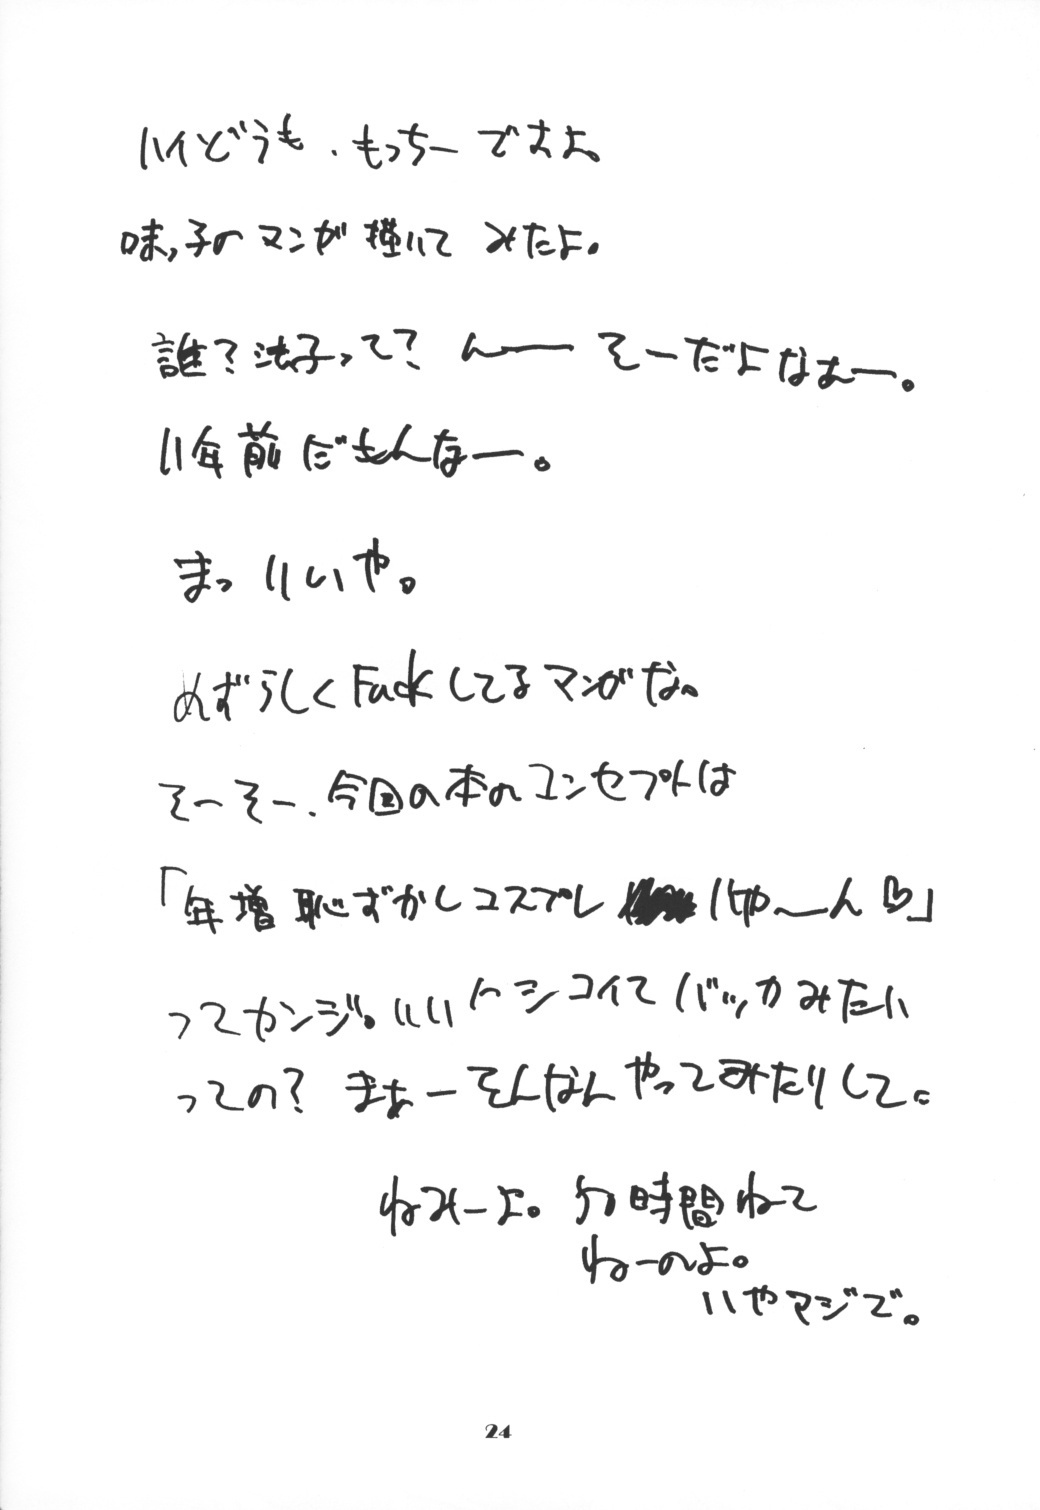 ハイどうも、もっちーですよ。
味っ子のマンガ描いて みたよ。
誰？法子って？ んーー そーだよなぁー。
11年前だもんなー。
まっ いいや。
めずらしくFuckしてるマンガな。
そーそー、今回の本のコンセプトは
「年増恥ずかしコスプレ いやーん♡」
ってカンジ。いい トシコイてバッカみたい
っての？ まぁーそんなんやってみたりして。
ねみーよ。 時間ねて
ねーのよ。
いやマジで。
24